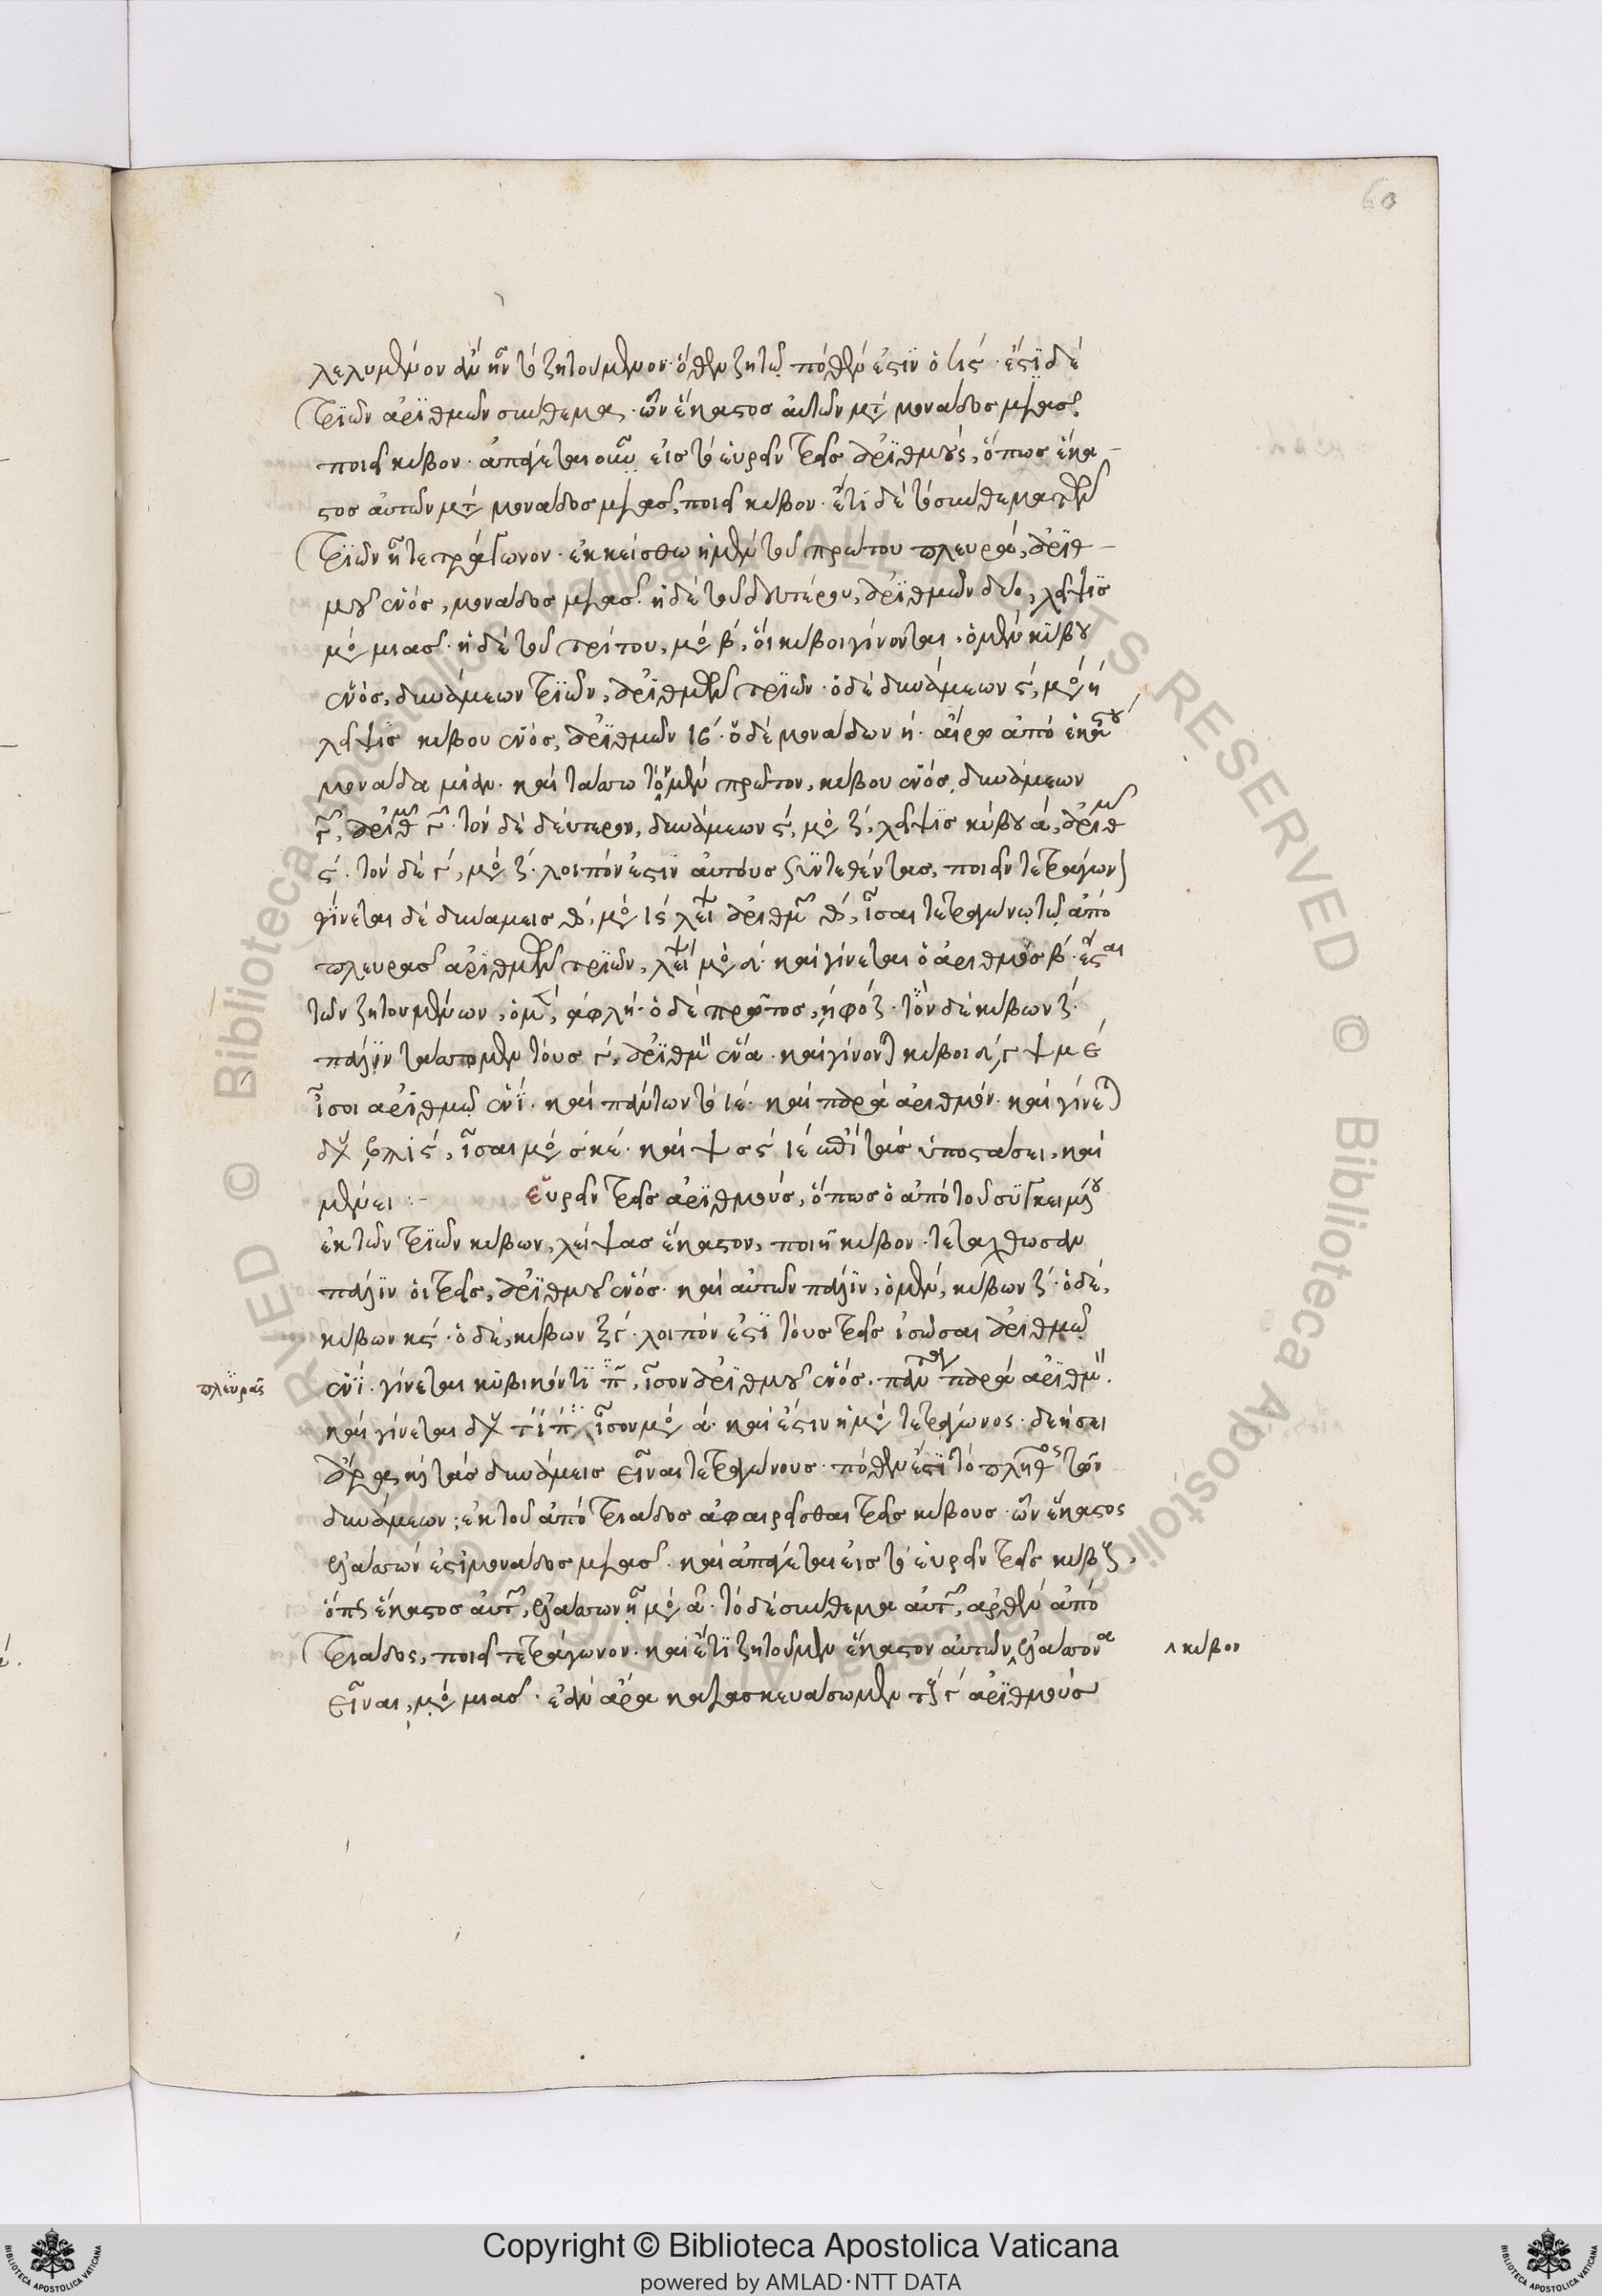 60
λελυμένον ἀν ἦν τὸ ζητούμενον· ὅθεν ζητῶ πόθεν ἐστὶν ὁ ις· ἔστι δὲ
τριῶν ἀριθμῶν σύνθεμα, ὧν ἕκαστος αὐτῶν μετὰ μονάδος μιᾶς,
ποιεῖ κύβον· ἀπάγεται οὖν εἰς τὸ εὑρεῖν τρεῖς ἀριθμούς, ὅπως ἕκα-
στος αὐτῶν μετὰ μονάδος μιᾶς, ποιεῖ κύβον· ἔτι δὲ τὸ σύνθεμα τῶν
τριῶν ᾖ τετράγωνον· ἐκκείσθω ἡ μὲν τοῦ πρώτου πλευρά, ἀριθ-
μοῦ ἑνός, μονάδος μιᾶς· ἡ δὲ τοῦ δευτέρου, ἀριθμῶν δύο, λείψις
μο μιᾶς· ἡ δὲ τοῦ τρίτου, μο β, οἱ κύβοι γίνονται, ὁ μὲν κύβου
ἑνός, δυνάμεων τριῶν, ἀριθμῶν τριῶν· ὁ δὲ δυνάμεων ς, μο η
λείψις κύβου ἑνός, ἀριθμῶν ιβ· ὁ δὲ μονάδων η· αἴρω ἀπὸ ἑκάστου
μονάδα μίαν· καὶ τάσσω τὸν μὲν πρῶτον, κύβου ἑνός, δυνάμεων
γ, ἀριθμῶν γ· τὸν δὲ δεύτερον, δυνάμεων ς, μο ζ, λείψις κύβου α, ἀριθμῶν
ς· τὸν δὲ γ, μο ζ· λοιπόν ἐστιν αὐτοὺς συντεθέντας, ποιεῖν τετράγων
γίνεται δὲ δυνάμεις θ, μο ις λείψει ἀριθμ θ, ἴσαι τετραγώνῳ τῷ ἀπὸ
πλευρᾶς ἀριθμῶν τριῶν, λείψει μο δ· καὶ γίνεται ὁ ἀριθμὸς β· ἔσται
τῶν ζητουμένων, ὁ μ, αφλη· ὁ δὲ πρῶτος, ηφοζ· τὸν δὲ κύβων ζ·
πάλιν τάσσομεν τοὺς γ, ἀριθμ ἕνα· καὶ γίνονται κύβοι
ἴσοι ἀριθμῷ ἑνί· καὶ πάντων τὸ ιε· καὶ παρὰ ἀριθμόν· καὶ γίνεται
ἴσαι μο σκε· καὶ ιε ἐπὶ τὰς ὑποστάσει, καὶ
μένει :- εὑρεῖν τρεῖς ἀριθμούς, ὅπως ὁ ἀπὸ τοῦ συγκειμένου
ἐκ τῶν τριῶν κύβων, λείψας ἕκαστον, ποιῇ κύβον· τετάχθωσαν
πάλιν οἱ τρεῖς, ἀριθμοῦ ἑνός· καὶ αὐτῶν πάλιν, ὁ μὲν, κύβων ζ· ὁ δὲ,
κύβων κς· ὁ δὲ, κύβων ξγ· λοιπόν ἐστι τοὺς τρεῖς ἰσῶσαι ἀριθμῷ
πλευρᾶς
ἑνί· γίνεται κυβικόν τι , ἴσον ἀριθμοῦ ἑνός· πάντα παρὰ ἀριθμ.
καὶ γίνεται ἴσον μο α· καὶ ἐστιν ἡ μο τετράγωνος· δεήσει
ἄρα καὶ τὰς δυνάμεις εἶναι τετραγώνους· πόθεν ἐστὶ τὸ πλῆθος τῶν
δυνάμεων; ἐκ τοῦ ἀπὸ τριάδος ἀφαιρεῖσθαι τρεῖς κύβους· ὧν ἕκαστος
ἐλάσσων ἐστὶ μονάδος μιᾶς· καὶ ἀπάγεται εἰς τὸ εὑρεῖν τρεῖς κύβους,
ὅπως ἕκαστος αὐτῶν, ἐλάσσων ᾖ μο α· τὸ δὲ σύνθεμα αὐτῶν, ἀρθὲν ἀπὸ
τριάδος, ποιεῖ τετράγωνον· καὶ ἔτι ζητοῦμεν ἕκαστον αὐτῶν ‸ ἐλάσσονα
‸ κύβον
εἶναι, μο μιᾶς· ἐὰν ἄρα κατασκευάσωμεν τοὺς γ ἀριθμοὺς
Copyright © Biblioteca Apostolica Vaticana
powered by AMLAD·NTT DATA